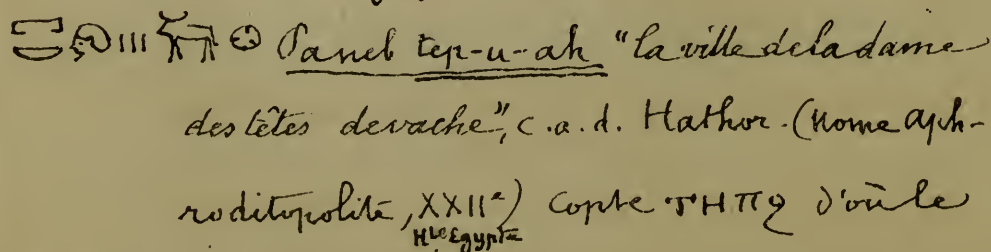 𓉐𓎟𓁶𓏪𓃒𓊖 Paneb tep-u-ah "la ville de la dame
des têtes de vache", c.a.d. Hathor. (Nome aph-
roditopolite, XXIIᵉ) Copte ⲧⲏⲡϩ d'où le
Hte Egypte